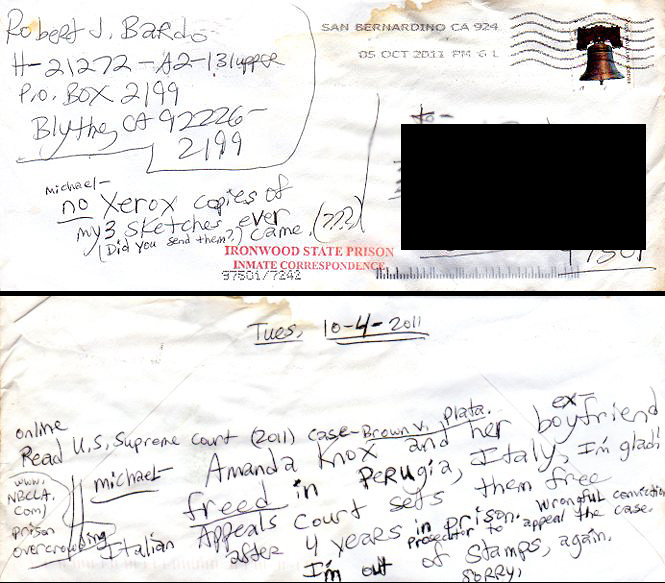 Robert J. Bardo
H-21272-A2-131upper
P.O. BOX 2199
Blythe, CA 92226-
2199
SAN BERNARDINO CA 924
05 OCT 2011 PM 6 L
to-
michael-
no Xerox copies of
my 3 sketches ever
(Did you send them?) came. (???)
IRONWOOD STATE PRISON
INMATE CORRESPONDENCE
97501/7242
97501
Tues, 10-4-2011
online
Read U.S. Supreme court (2011) case-Brown v. Plata.
www.
NBCLA.
com/
prison
overcrowding
michael- Amanda Knox and her ex-boyfriend
freed in Perugia, Italy, I'm glad!
Italian Appeals Court sets them free
after 4 years in prison. wrongful conviction
prosecutor to appeal the case.
I'm out of stamps, again.
sorry,